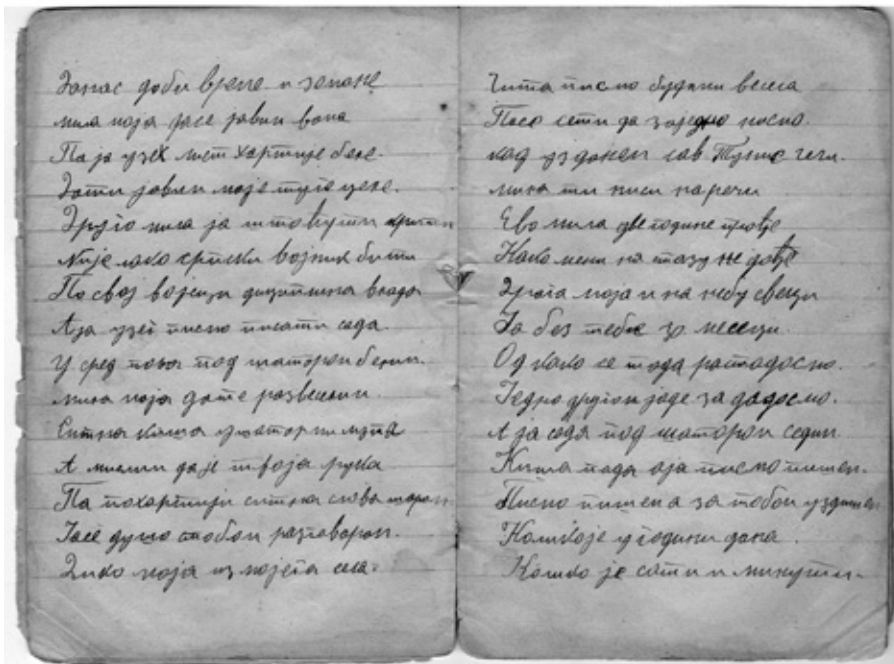 Данас доби време и земане
мила моја дасе јавим вама
Па ја узех лист хартије беле.
Дати јавим моје туге целе.
Друго мила ја штовути
Није лако српски војник бити
По свој војсци дисциплина влада
А ја узех писмо писати сада.
У сред поља под шатором белим.
мила моја дате развеселим.
Ситна киша ушатор ми лупа
А мислим да је твоја рука
Па похартији ситна слова
Јасе душо стобом разговарам.
Дико моја из мојега села.
Чита писмо будими весела
Пасе сети да заједно носмо.
кад уз данем сав
мила ти ниси наречи
Ево мила две године прође
Како мени на те не дође
Драга моја и на небу свеци
Ја без тебе 30 месеци.
Од како се тада растадосмо.
Једно другом јаде за дадосмо.
А ја сада под шатором седим
Киша пада аја писмо пишем.
Писмо пишем а за тобом уздишем
Коликоје у години дана.
Колико је сати и минути.